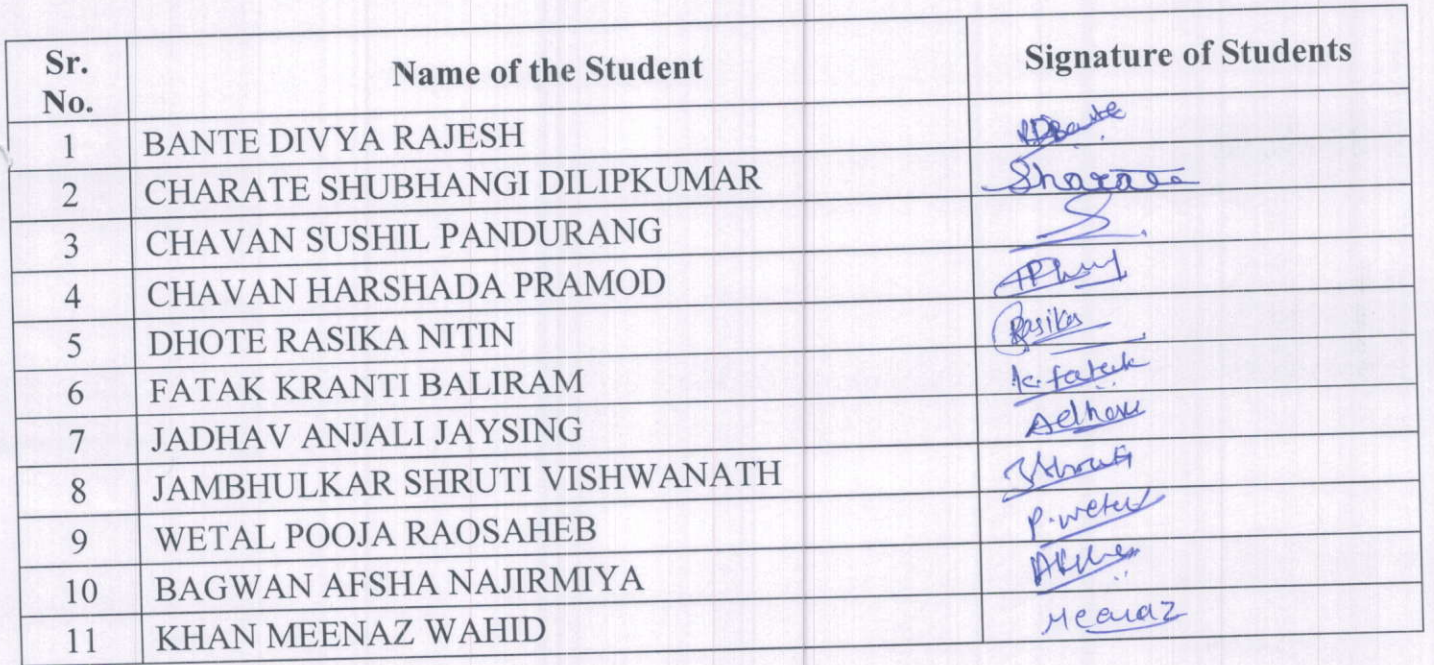 Sr. No. Name of the Student Signature of Students
1 BANTE DIVYA RAJESH
2 CHARATE SHUBHANGI DILIPKUMAR
3 CHAVAN SUSHIL PANDURANG
4 CHAVAN HARSHADA PRAMOD
5 DHOTE RASIKA NITIN Rasika
6 FATAK KRANTI BALIRAM k.fatak
7 JADHAV ANJALI JAYSING
8 JAMBHULKAR SHRUTI VISHWANATH
9 WETAL POOJA RAOSAHEB P.wetal
10 BAGWAN AFSHA NAJIRMIYA
11 KHAN MEENAZ WAHID Meenaz